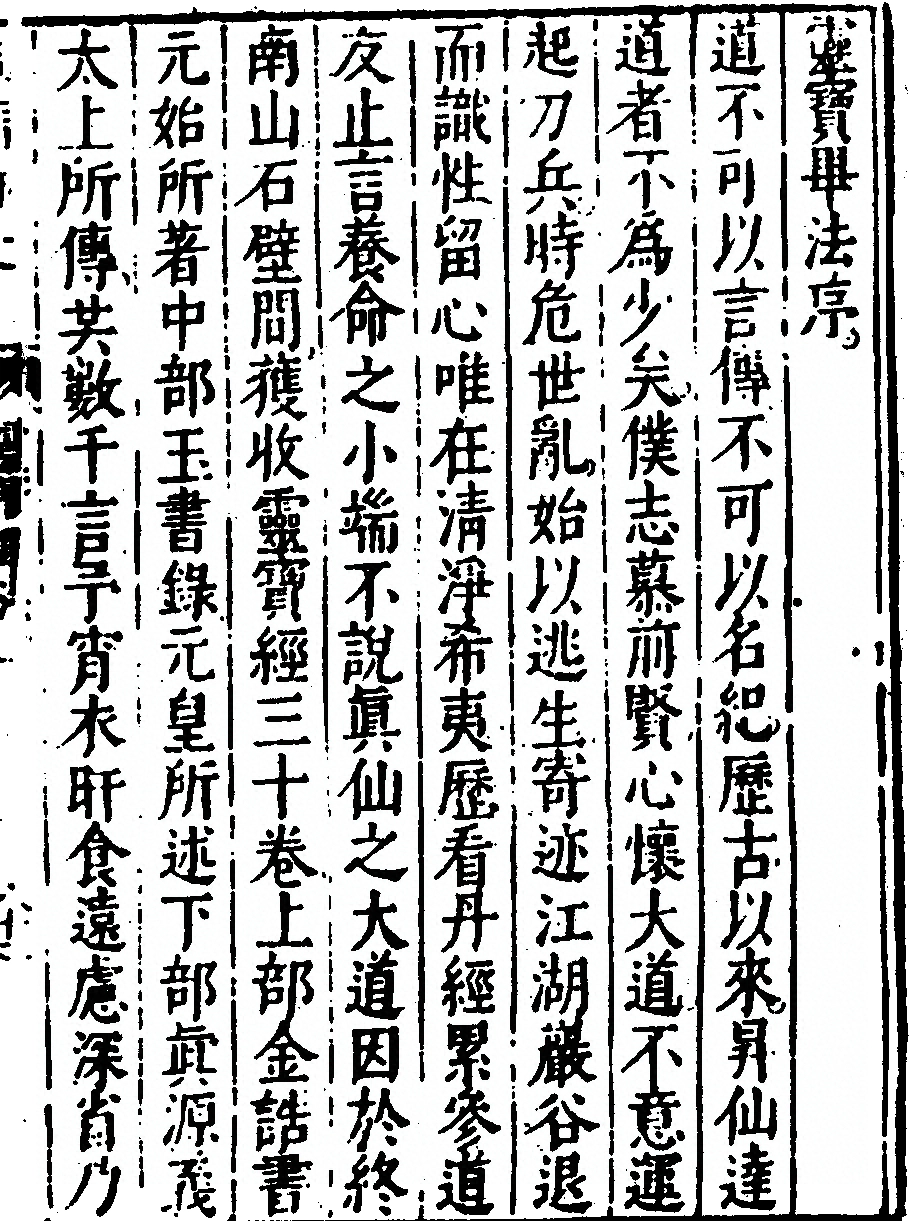 靈寶畢法序
道不可以言傳不可以名紀歷古以來昇仙達
道者不為少矣僕志慕前賢心懷大道不意運
起刀兵時危世亂始以逃生寄迹江湖巖谷退
而識性留心唯在清淨希夷歷看丹經累參道
友止言養命之小端不說眞仙之大道因於終
南山石壁間獲收靈寶經三十卷上部金誥書
元始所著中部玉書錄元皇所述下部眞源義
太上所傳共數千言予宵衣旰食遠慮深省乃